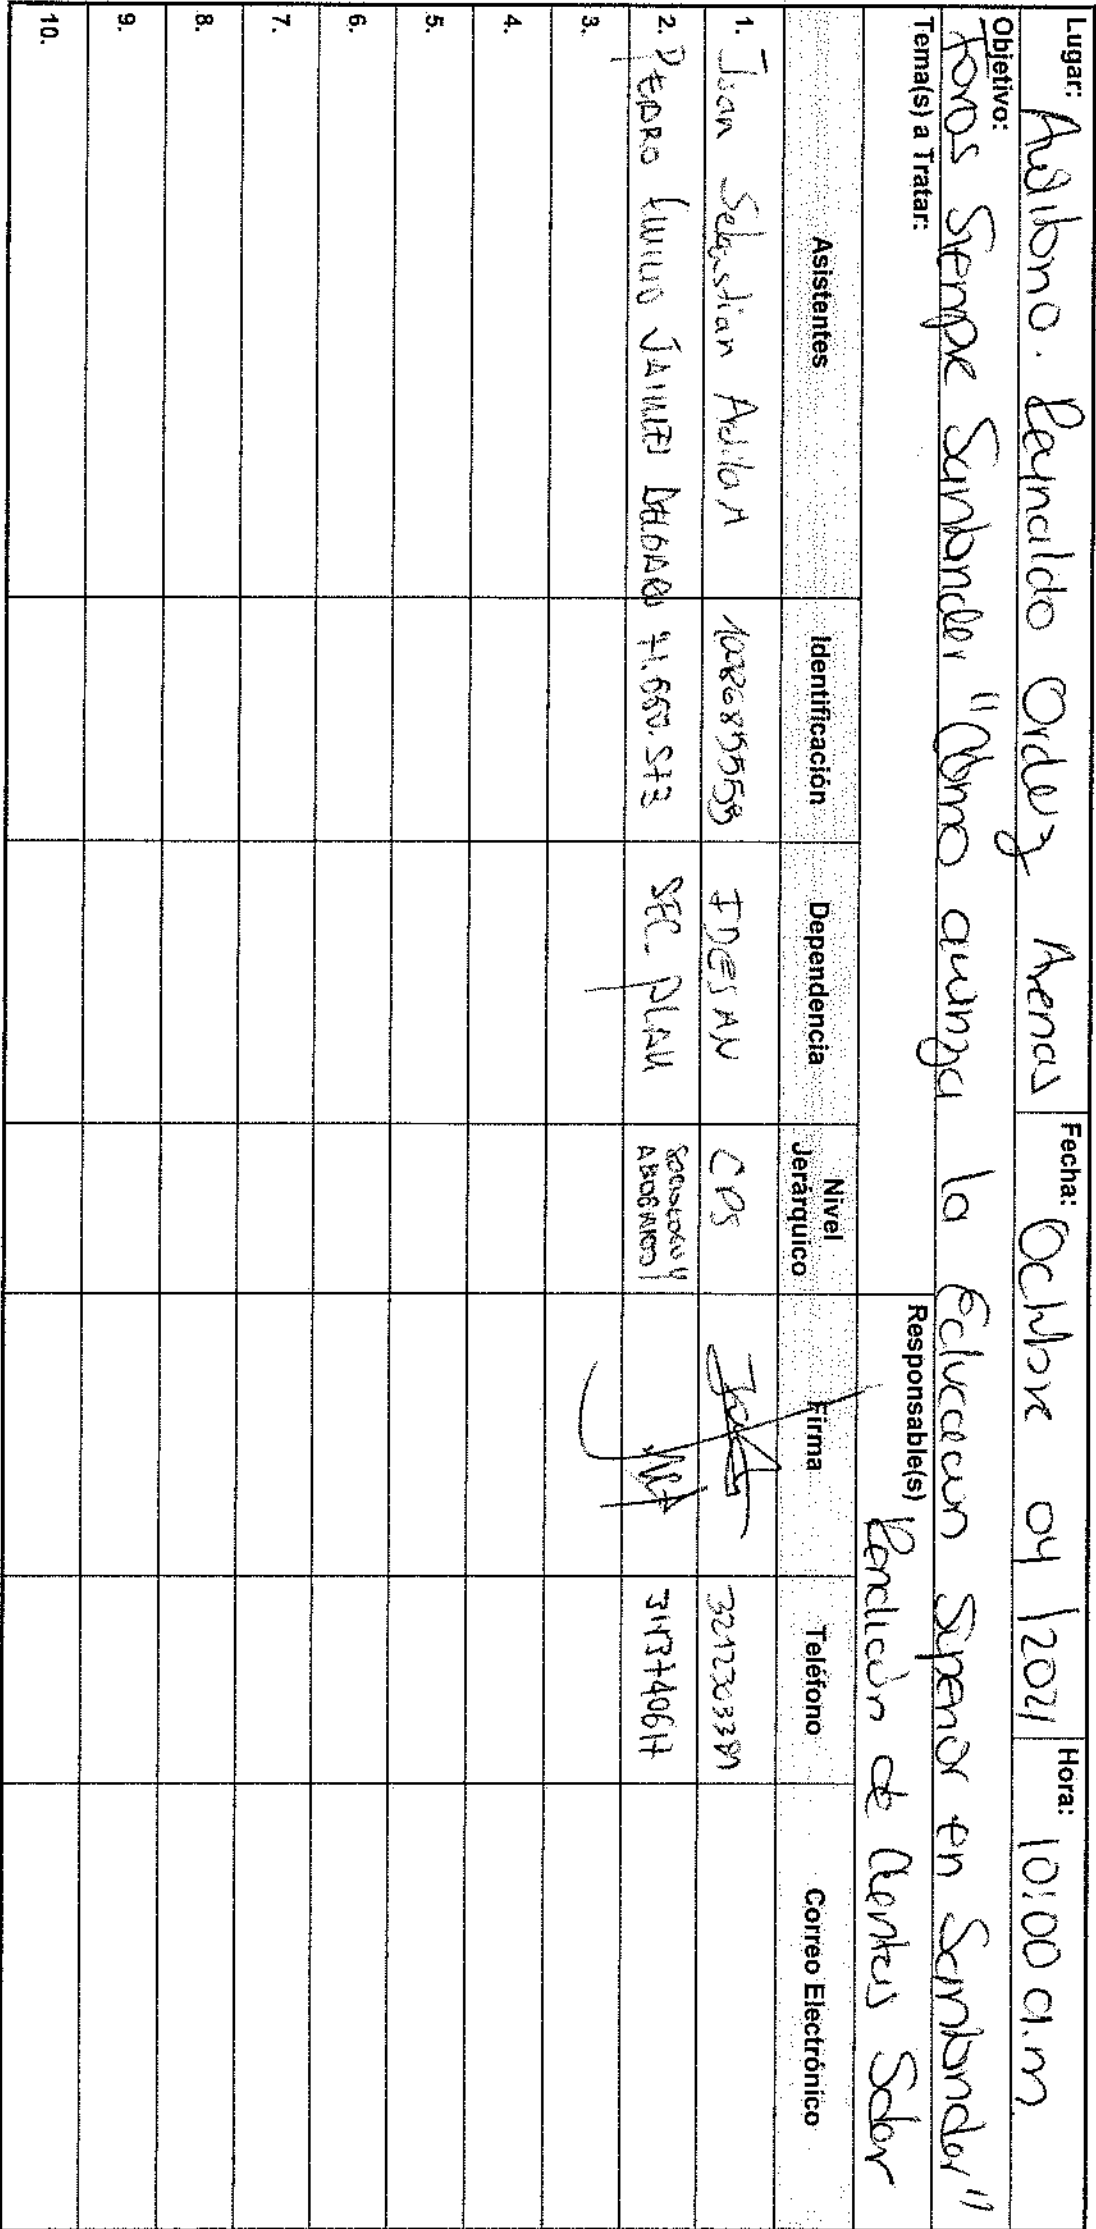 Lugar: Auditorio. Reynaldo Orduz Arenas Fecha: Octubre 04 /2021 Hora: 10:00 a.m
Objetivo:
Foros Siempre Santander "Cómo avanza la Educación Superior en Santander"
Tema(s) a Tratar: Responsable(s) Rendición de Cuentas Sdar
Asistentes Identificación Dependencia Nivel Jerárquico Firma Teléfono Correo Electrónico
1. Juan Sebastian Ardila A IDESAN CPS
2. PEDRO EMILIO JAIMES DELGADO SEC. PLAN SOCIOLOGO Y ABOGADO
3.
4.
5.
6.
7.
8.
9.
10.